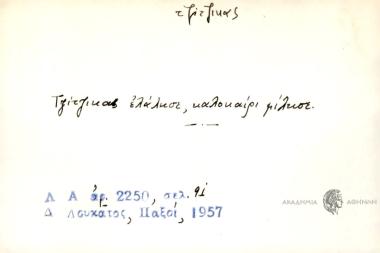 τζίτζικας
Τζίτζικας ἐλάλησε, καλοκαίρι μίλησε.
Λ Α ἀρ. 2250, σελ. 91
Δ Λουκάτος, Παξοί, 1957
ΑΚΑΔΗΜΙΑ ΑΘΗΝΩΝ